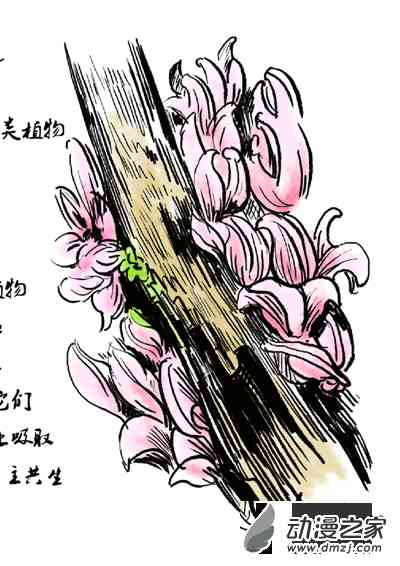 类植物
植物
它们
上吸取
主共生
动漫之家
www.dmzj.com